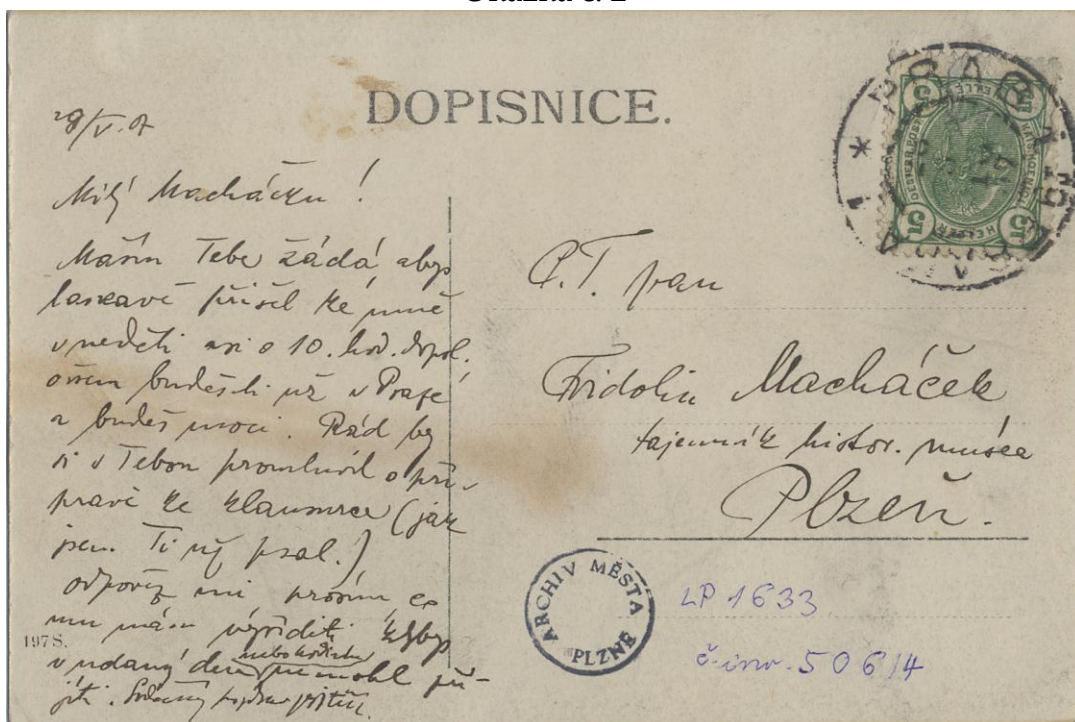 DOPISNICE.
28/V. 07
Milý Macháčku!
Mašín Tebe žádá abys
laskavě přišel ke mně
v neděli asi o 10. hod. dopol.
ovšem budeš-li už v Praze
a budeš moci. Rád by
si s Tebou promluvil o pří-
pravě ke klausurce (jak
jsem Ti již psal.)
odpověz mi prosím co
mu mám vyříditi kdybys
v udaný den nebo hodinu nemohl při-
jíti. Srdečný pozdrav
1978.
P.T. pan
Fridolin Macháček
tajemník histor. musea
Plzeň.
ARCHIV MĚSTA PLZNĚ
LP 1633
č. inv. 506/4
5
5
HELLER
5
5